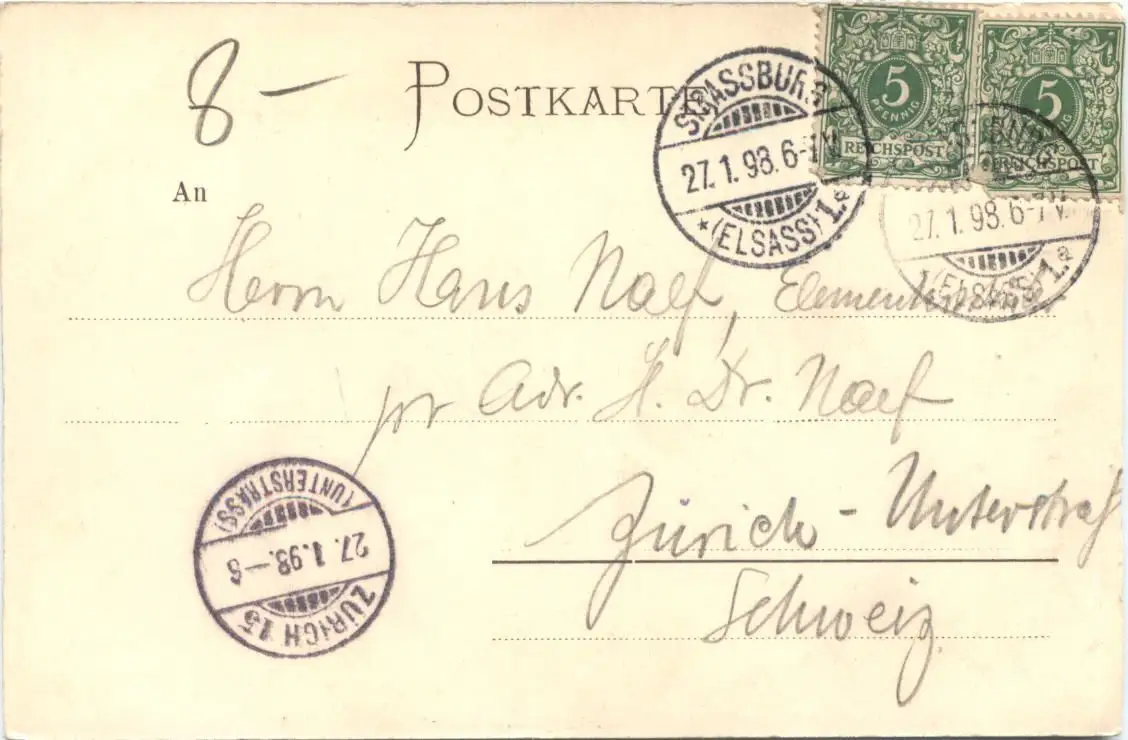 8 –
POSTKARTE
5
PFENNIG
REICHSPOST
5
REICHSPOST
STRASSBURG
27.1.98.6-7V.
*(ELSASS)1.a
27.1.98.6-7V.
*(ELSASS)1.a
An
Herrn Hans Naef,
pr Adr. H. Dr. Naef
Zürich - Unterstraß
Schweiz
ZÜRICH 15
27.1.98.–6
(UNTERSTRASS)